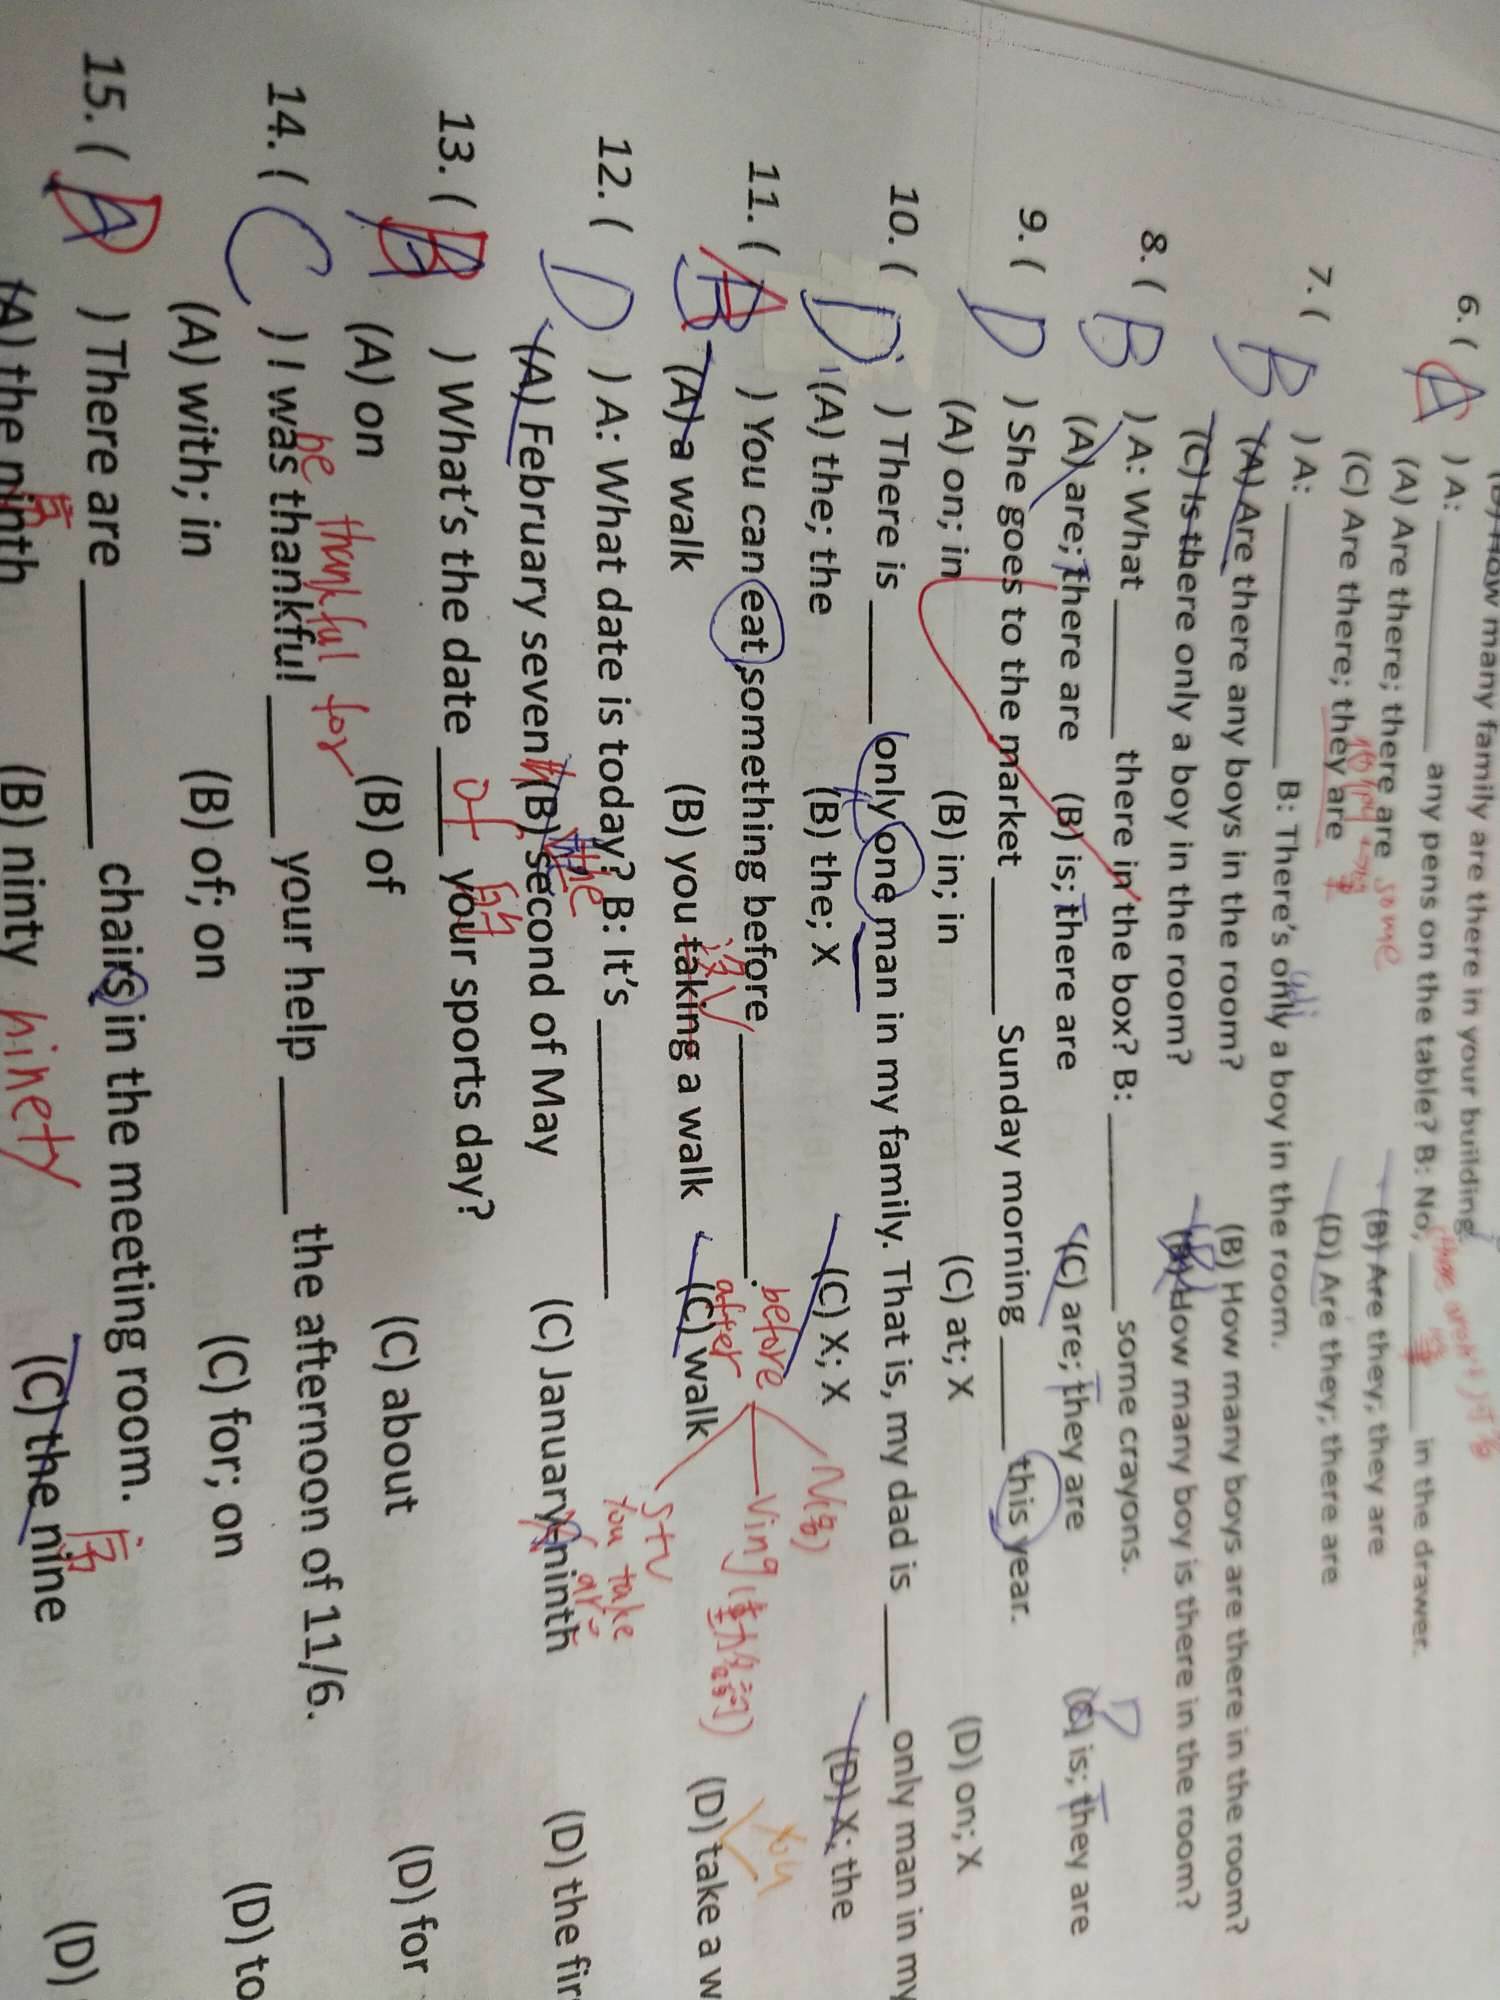 many family are there in your building
6. ( A ) A: ________ any pens on the table? B: No, ________ in the drawer.
(A) Are there; there are some (B) Are they; they are
(C) Are there; they are (D) Are they; there are
7. ( B ) A: ________ B: There's only a boy in the room.
(A) Are there any boys in the room? (B) How many boys are there in the room?
(C) Is there only a boy in the room? How many boy is there in the room?
8. ( B ) A: What ______ there in the box? B: ________ some crayons.
(A) are; there are (B) is; there are (C) are; they are D is; they are
9. ( D ) She goes to the market ______ Sunday morning ______ this year.
(A) on; in (B) in; in (C) at; X (D) on; X
10. ( D ) There is ______ only one man in my family. That is, my dad is ______ only man in my
(A) the; the (B) the; X (C) X; X (D) X; the
11. ( A ) You can eat something before ________. before N(名)
after Ving (動名詞)
S+V
You take
(A) a walk (B) you taking a walk (C) walk (D) take a w
you
12. ( D ) A: What date is today? B: It's ________
(A) February seven th (B) the second of May (C) January ninth (D) the fir
13. ( B ) What's the date of your sports day?
(A) on (B) of (C) about (D) for
be thankful for
14. ( C ) I was thankful ______ your help ______ the afternoon of 11/6.
(A) with; in (B) of; on (C) for; on (D) to
15. ( D ) There are ________ chairs in the meeting room.
(A) the ninth (B) ninty ninety (C) the nine (D)